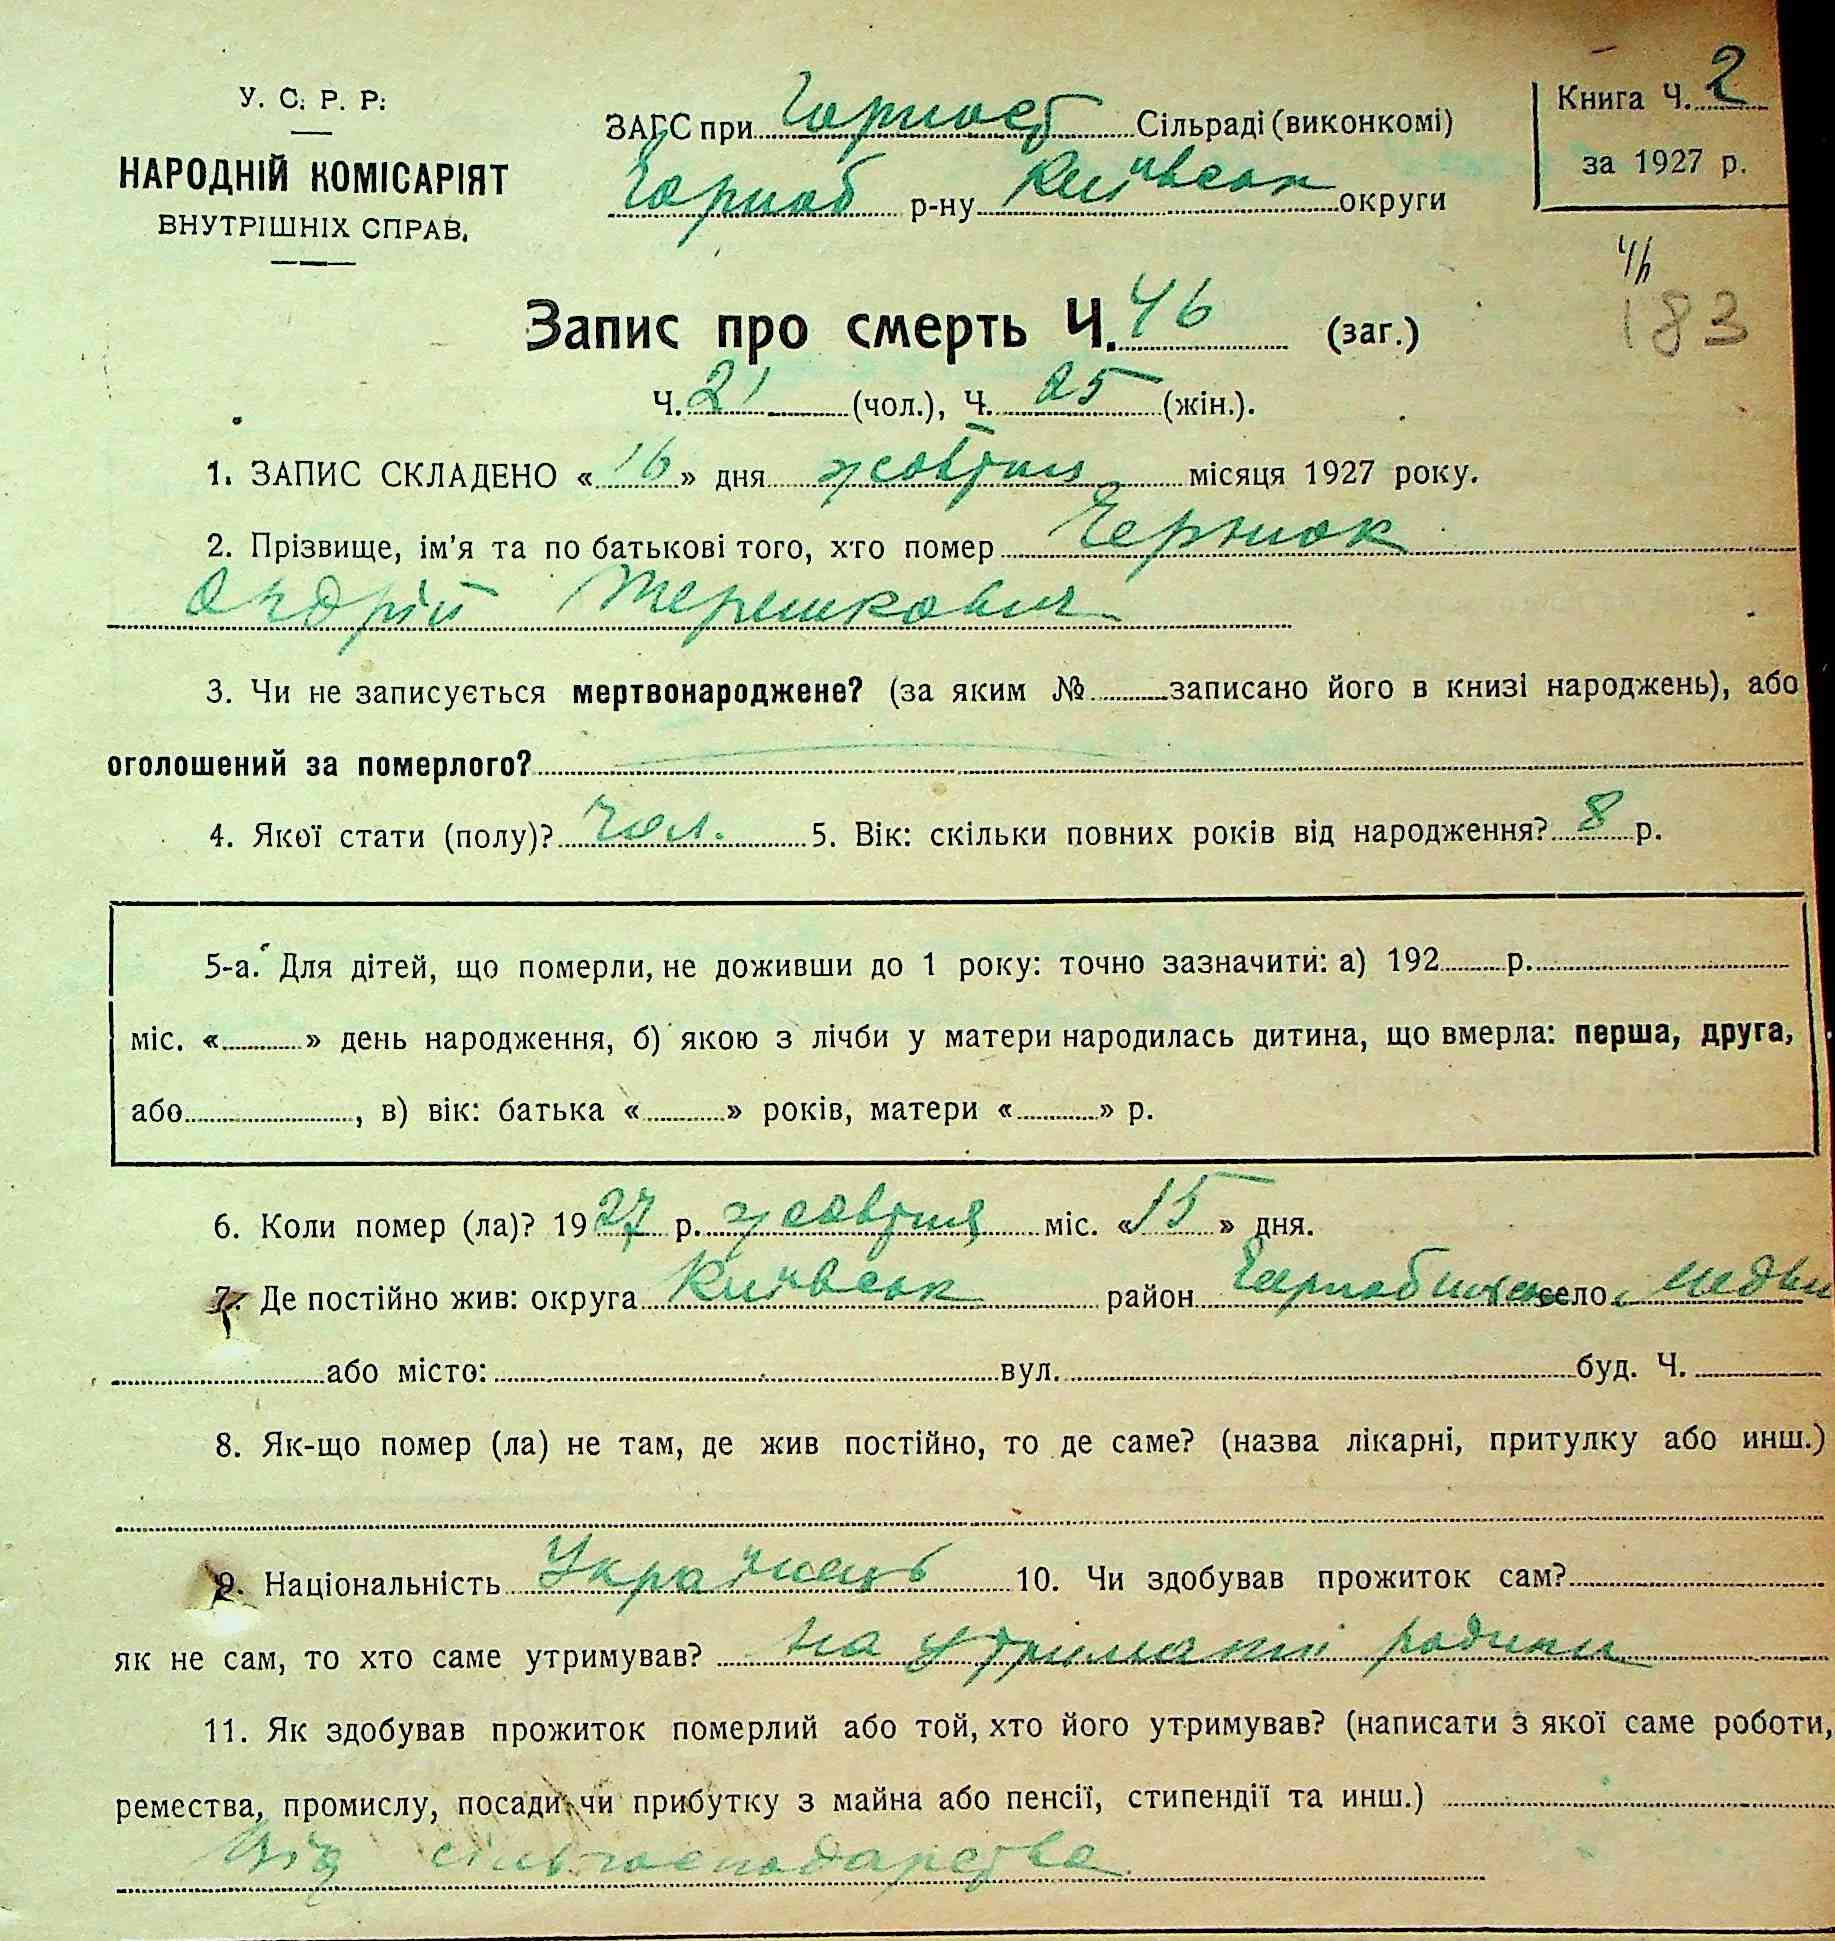 У. С. Р. Р.
НАРОДНІЙ КОМІСАРІЯТ
ВНУТРІШНІХ СПРАВ.
ЗАГС при Сільраді (виконкомі)
Чорноб р-ну Київськ округи
Книга Ч. 2
за 1927 р.
183
Запис про смерть Ч. 46 (заг.)
Ч. 21 (чол.), Ч. 25 (жін.).
1. ЗАПИС СКЛАДЕНО «16» дня жовтня місяця 1927 року.
2. Прізвище, ім'я та по батькові того, хто помер
Андрій Терешкович
3. Чи не записується мертвонароджене? (за яким № записано його в книзі народжень), або
оголошений за померлого?
4. Якої стати (полу)? чол. 5. Вік: скільки повних років від народження? 8 р.
5-а. Для дітей, що померли, не доживши до 1 року: точно зазначити: а) 192 р.
міс. « » день народження, б) якою з лічби у матери народилась дитина, що вмерла: перша, друга,
або , в) вік: батька « » років, матери « » р.
6. Коли помер (ла)? 1927 р. жовтня міс. «15» дня.
7. Де постійно жив: округа Київськ район село
або місто: вул. буд. Ч.
8. Як-що помер (ла) не там, де жив постійно, то де саме? (назва лікарні, притулку або инш.)
9. Національність Українець 10. Чи здобував прожиток сам?
як не сам, то хто саме утримував? на утриманні родини
11. Як здобував прожиток померлий або той, хто його утримував? (написати з якої саме роботи,
ремества, промислу, посади чи прибутку з майна або пенсії, стипендії та инш.)
Від сільгосподарства